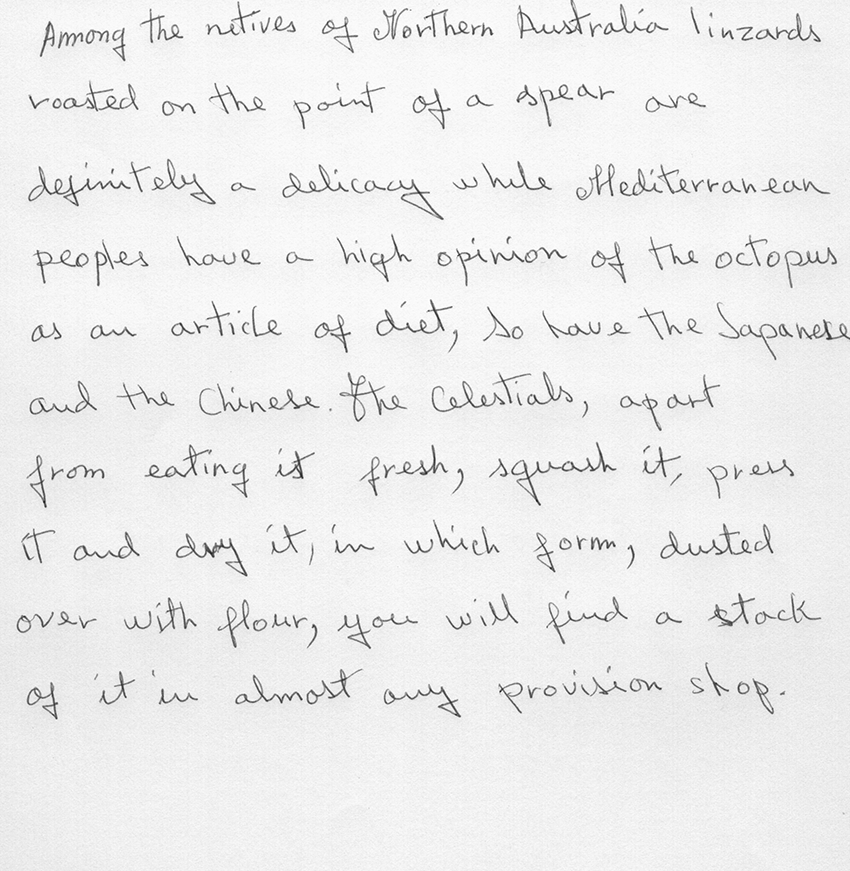 Among the netives of Northern Australia linzards
roasted on the point of a spear are
definitely a delicacy while Mediterranean
peoples have a high opinion of the octopus
as an article of diet, so have the Japanese
and the Chinese. The Celestials, apart
from eating it fresh, squash it, press
it and dry it, in which form, dusted
over with flour, you will find a stack
of it in almost any provision shop.